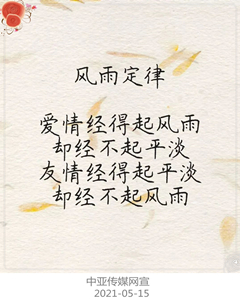 风雨定律
爱情经得起风雨
却经不起平淡
友情经得起平淡
却经不起风雨
中亚传媒网宣
2021-05-15